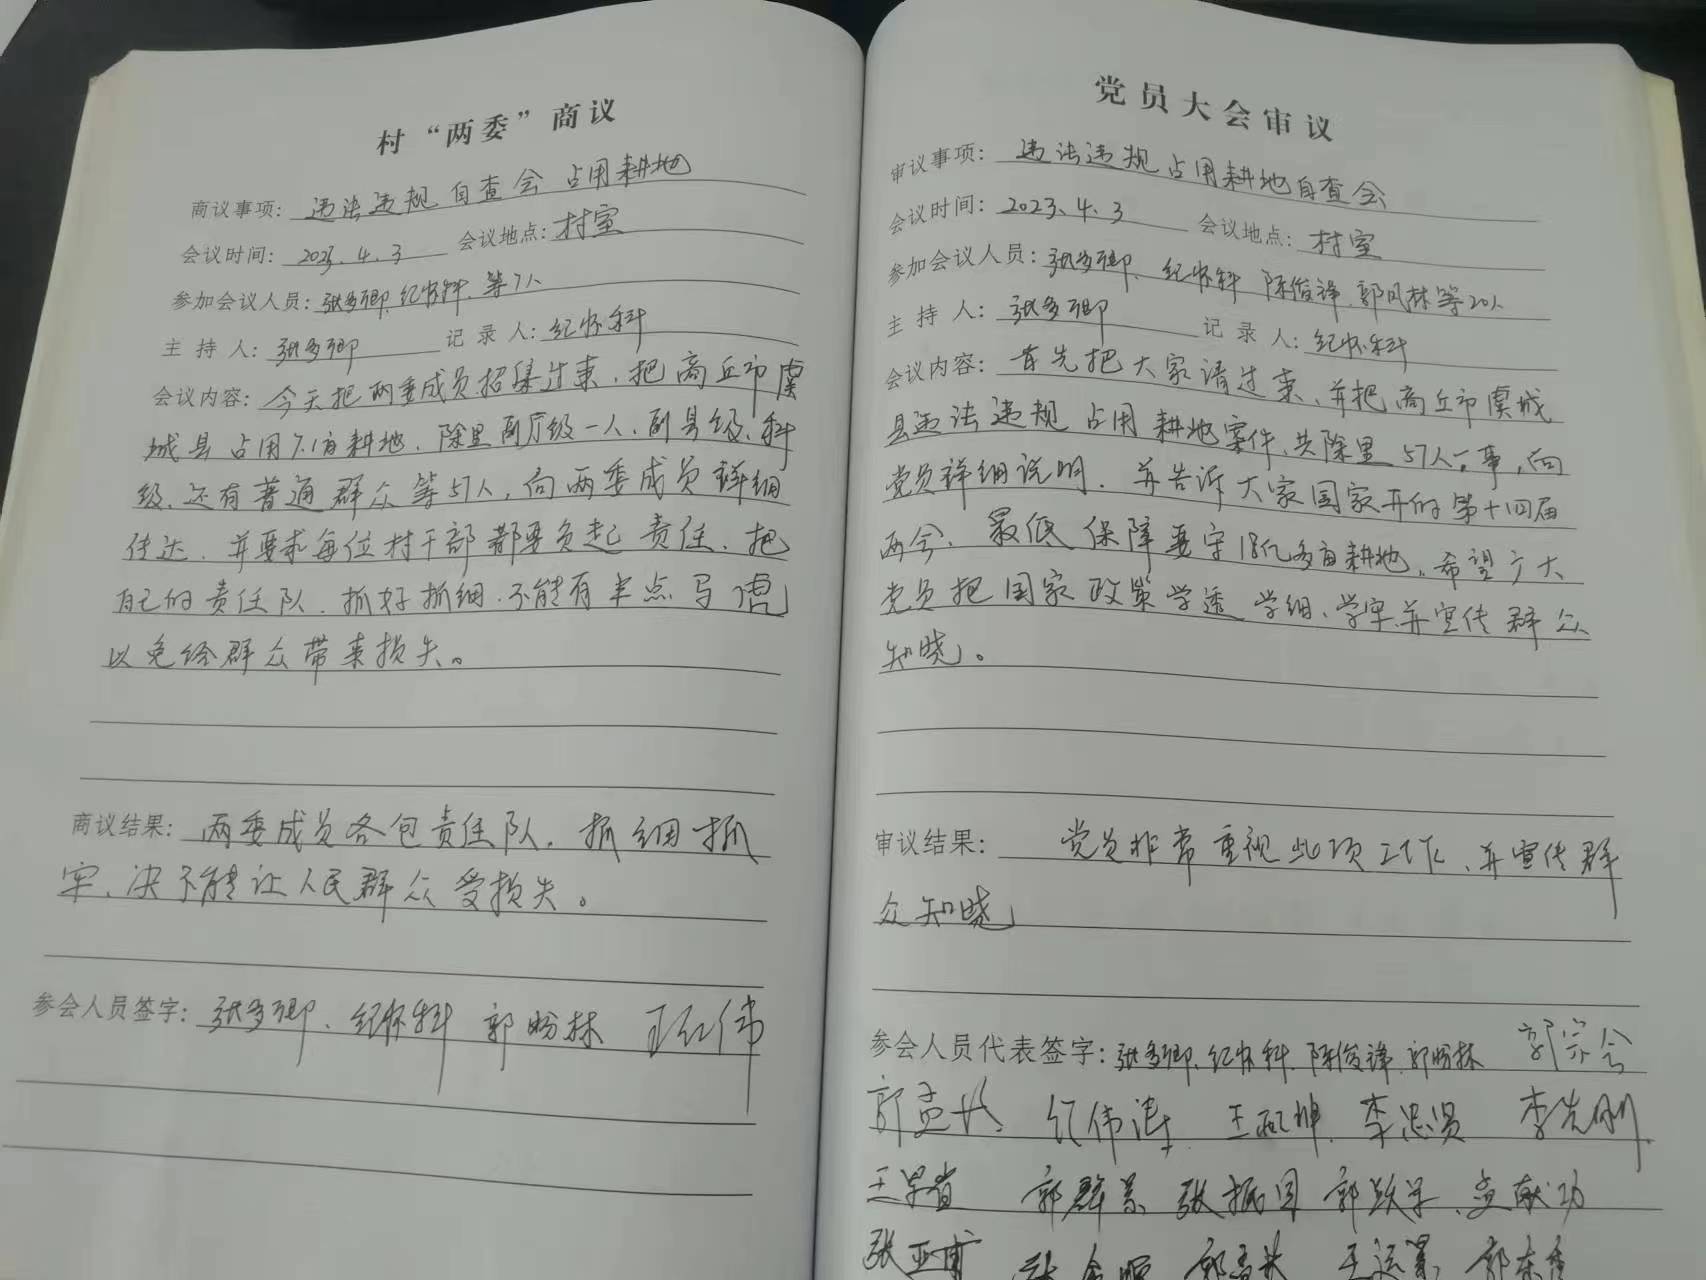 村“两委”商议
商议事项：违法违规自查会 占用耕地
会议时间：2023.4.3 会议地点：村室
参加会议人员：张多卿、纪怀科、等7人
主持人：张多卿 记录人：纪怀科
会议内容：今天把两委成员招集过来，把商丘市虞
城县占用7.1亩耕地，除里副厅级一人，副县级、科
级、还有普通群众等57人，向两委成员详细
传达，并要求每位村干部都要负起责任，把
自己的责任队，抓好抓细，不能有半点马虎
以免给群众带来损失。
商议结果：两委成员各包责任队，抓细抓
牢，决不能让人民群众受损失。
参会人员签字：张多卿、纪怀科 郭盼林 王红伟
党员大会审议
审议事项：违法违规占用耕地自查会
会议时间：2023.4.3 会议地点：村室
参加会议人员：张多卿、纪怀科 陈俊锋、郭风林等20人
主持人：张多卿 记录人：纪怀科
会议内容：首先把大家请过来，并把商丘市虞城
县违法违规占用耕地案件，共除里57人一事，向
党员详细说明，并告诉大家国家开的第十四届
两会，最低保障要守18亿多亩耕地。希望广大
党员把国家政策学透学细、学牢，并宣传群众
知晓。
审议结果：党员非常重视此项工作，并宣传群
众知晓
参会人员代表签字：张多卿、纪怀科、陈俊锋、郭盼林 郭宗会
纪伟涛 李忠贤 李先刚
郭群 张振国 郭跃 孟献功
张亚